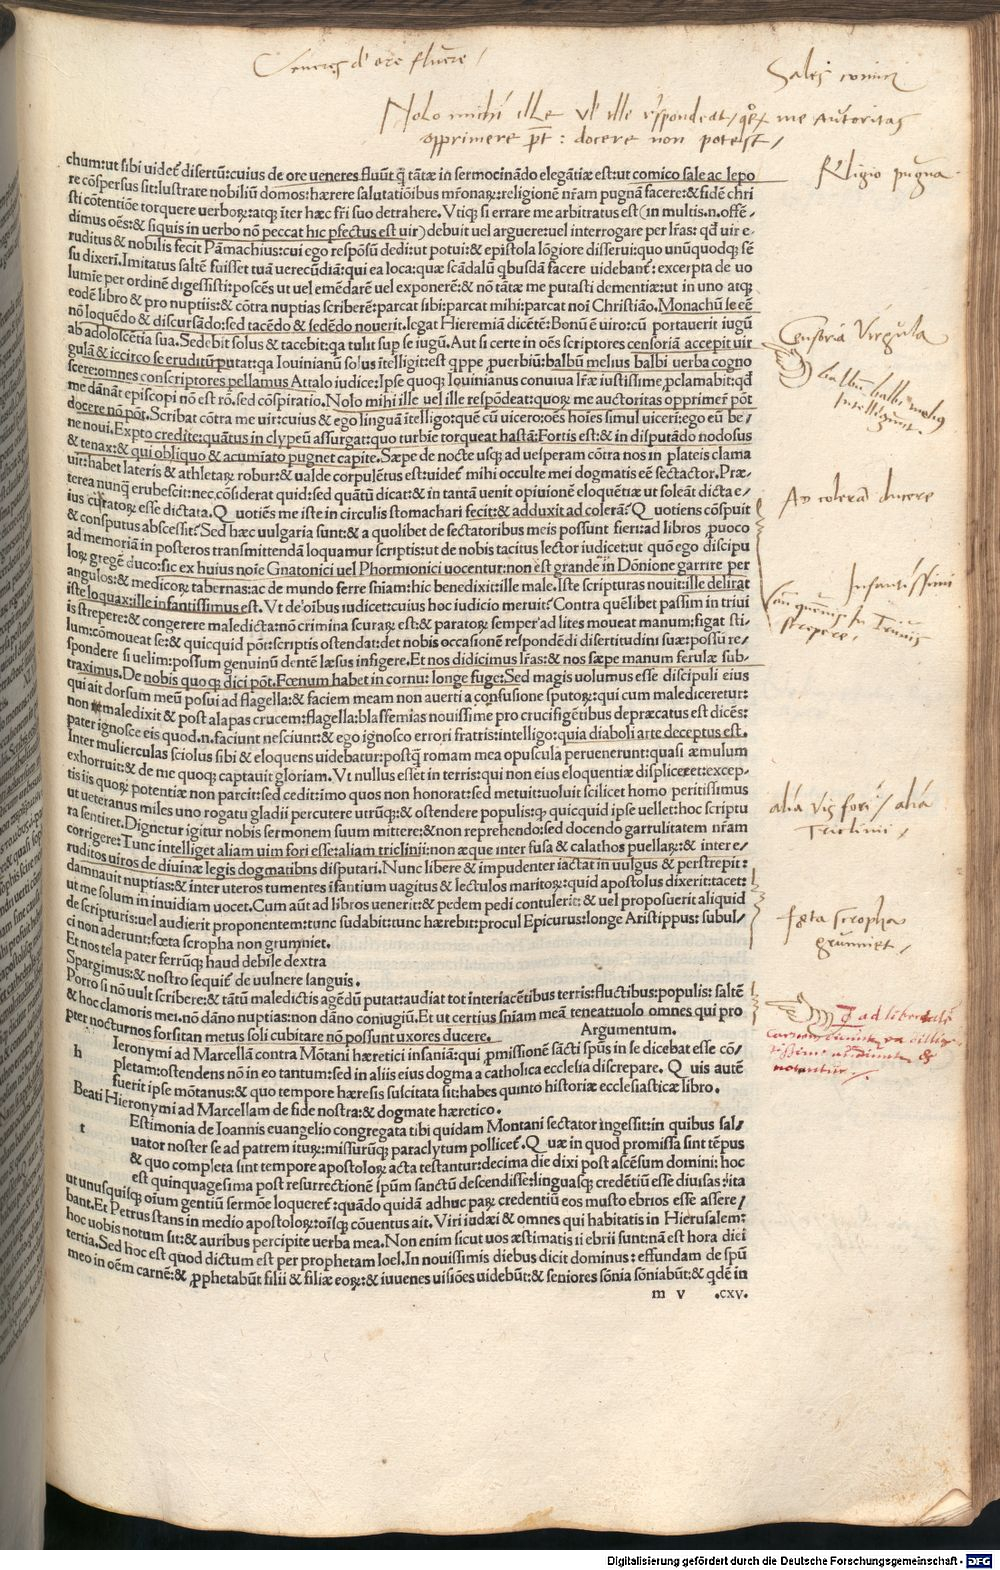 Veneres d' ore fluere /
Sales comici
Nolo mihi ille vl' ille respondeat / me autoritas
opprimere pt̄ : docere non potest /
Religio pugna
chum:ut sibi uidet᷒ disertũ:cuius de ore ueneres fluũt:q̃ tãtæ in sermocinãdo elegãtiæ est:ut comico sale ac lepo
re cõspersus sit:lustrare nobiliũ domos:hærere salutatiõibus mr̃onaꝝ:religionẽ nr̃am pugnã facere:& fidẽ chri
sti cõtentiõe torquere uerboꝝ:atqꝫ iter hæc fr̃i suo detrahere.Vtiqꝫ si errare me arbitratus est(in multis.n.offẽ⸗
dimus oẽs:& siquis in uerbo nõ peccat hic ꝑfectus est uir)debuit uel arguere:uel interrogare per lr̃as: qd̃ uir e⸗
ruditus & nobilis fecit Pãmachius:cui ego respõsũ dedi:ut potui:& epistola lõgiore disserui:quo unũquodqꝫ sẽ
su dixerĩ.Imitatus saltẽ fuisset tuã uerecũdiã:qui ea loca:quæ scãdalũ qbusdã facere uidebant᷒:excerpta de uo
lumie per ordinẽ digessisti:poscẽs ut uel emẽdarẽ uel exponerẽ:& nõ tãtæ me putasti dementiæ:ut in uno atqꝫ
eodẽ libro & pro nuptiis:& cõtra nuptias scriberẽ:parcat sibi:parcat mihi:parcat noĩ Christião.Monachũ se eẽ
nõ loquẽdo & discursãdo:sed tacẽdo & sedẽdo nouerit.legat Hieremiã dicẽtẽ:Bonũ ẽ uiro:cũ portauerit iugũ
ab adolescẽtia sua.Sedebit solus & tacebit:qa tulit sup se iugũ.Aut si certe in oẽs scriptores censoriã accepit uir
gulã & iccirco se eruditũ putat:qa Iouinianũ solus itelligit:est qppe ꝓuerbiũ:balbũ melius balbi uerba cogno
scere:omnes conscriptores pellamus Attalo iudice:Ipse quoqꝫ Iouinianus conuiua lr̃æ iustissime ꝓclamabit:qd̃
me dãnãt episcopi nõ est rõ.sed cõspiratio.Nolo mihi ille uel ille respõdeat:quoꝝ me auctoritas opprimer᷒ põt
docere nõ põt.Scribat cõtra me uir:cuius & ego linguã itelligo:quẽ cũ uicero:oẽs hoĩes simul uicerĩ:ego eũ be⸗
ne noui.Expto credite:quãtus in clypeũ assurgat:quo turbie torqueat hastã:Fortis est:& in disputãdo nodosus
& tenax:& qui obliquo & acumiato pugnet capite.Sæpe de nocte usqꝫ ad uesperam cõtra nos in plateis clama
uit:habet lateris & athletaꝝ robur:& ualde corpulẽtus est:uidet᷒ mihi occulte mei dogmatis eẽ sectactor.Præ⸗
terea nunq̃ erubescit:nec cõsiderat quid:sed quãtũ dicat:& in tantã uenit opiuionẽ eloquẽtiæ ut soleãt dicta e⸗
ius curatoꝝ esse dictata.Quotiẽs me iste in circulis stomachari fecit:& adduxit ad colerã?Quotiens cõspuit
& consputus abscessit?Sed hæc uulgaria sunt:& a quolibet de sectatoribus meis possunt fieri:ad libros ꝓuoco
ad memoriã in posteros transmittendã loquamur scriptis:ut de nobis tacitus lector iudicet:ut quõ ego discipu
loꝝ gregẽ duco:sic ex huius noĩe Gnatonici uel Phormionici uocentur:non est grande in Dõnione garrire per
angulos:& medicoꝝ tabernas:ac de mundo ferre sniam:hic benedixit:ille male.Iste scripturas nouit:ille delirat
iste loquax:ille infantissimus est.Vt de oĩbus iudicet:cuius hoc iudicio meruit?Contra quẽlibet passim in triui
is strepere:& congerere maledicta:nõ crimina scuraꝝ est:& paratoꝝ semper ad lites moueat manum:figat sti⸗
lum:cõmoueat se:& quicquid põt:scriptis ostendat:det nobis occasionẽ respondẽdi disertitudini suæ:possũ re⸗
spondere si uelim:possum genuinũ dentẽ læsus infigere.Et nos didicimus lr̃as:& nos sæpe manum ferulæ sub⸗
traximus.De nobis quoqꝫ dici põt.Fœnum habet in cornu: longe fuge:Sed magis uolumus esse discipuli eius
qui ait dorsum meũ posui ad flagella:& faciem meam non auerti a confusione sputoꝝ:qui cum malediceretur:
non maledixit & post alapas crucem:flagella:blasfemias nouissime pro crucifigẽtibus depræcatus est dicẽs:
pater ignosce eis quod.n.faciunt nesciunt:& ego ignosco errori fratris:intelligo:quia diaboli arte deceptus est.
Inter mulierculas sciolus sibi & eloquens uidebatur:postq̃ romam mea opuscula peruenerunt:quasi æmulum
exhorruit:& de me quoqꝫ captauit gloriam.Vt nullus esset in terris:qui non eius eloquentiæ displiceret:excep⸗
tis iis quoꝝ potentiæ non parcit:sed cedit:imo quos non honorat:sed metuit:uoluit scilicet homo peritissimus
ut ueteranus miles uno rogatu gladii percutere utrũqꝫ:& ostendere populis:q quicquid ipse uellet:hoc scriptu
ra sentiret.Dignetur igitur nobis sermonem suum mittere:&non reprehendo:sed docendo garrulitatem nr̃am
corrigere:Tunc intelliget aliam uim fori esse:aliam triclinii:non æque inter fusa & calathos puellaꝝ:& inter e⸗
ruditos uiros de diuinæ legis dogmatibns disputari.Nunc libere & impudenter iactat in uulgus & perstrepit:
damnauit nuptias:& inter uteros tumentes ifantium uagitus & lectulos maritoꝝ:quid apostolus dixerit:tacet:
ut me solum in inuidiam uocet.Cum aũt ad libros uenerit:& pedem pedi contulerit: & uel proposuerit aliquid
de scripturis:uel audierit proponentem:tunc sudabit:tunc hærebit:procul Epicurus:longe Aristippus: subul⸗
ci non aderunt:fœta scropha non grumniet.
Et nos tela pater ferrũqꝫ haud debile dextra
Spargimus:& nostro sequit᷒ de uulnere languis.
Porro si nõ uult scribere:& tãtũ maledictis agẽdũ putat:audiat tot interiacẽtibus terris:fluctibus:populis: saltẽ
& hoc clamoris mei.nõ dãno nuptias:non dãno coniugiũ.Et ut certius sniam meã teneat:uolo omnes qui pro
pter nocturnos forsitan metus soli cubitare nõ possunt uxores ducere.
Argumentum.
h Ieronymi ad Marcellã contra Mõtani hæretici insaniã:qui ꝓmissionẽ sãcti spũs in se dicebat esse cõ⸗
pletam:ostendens nõ in eo tantum:sed in aliis eius dogma a catholica ecclesia discrepare. Quis autẽ
fuerit ipse mõtanus:& quo tempore hæresis suscitata sit:habes quinto historiæ ecclesiasticæ libro.
Beati Hieronymi ad Marcellam de fide nostra:& dogmate hæretico.
t Estimonia de Ioannis euangelio congregata tibi quidam Montani sectator ingessit:in quibus sal⸗
uator noster se ad patrem ituꝝ:missurũqꝫ paraclytum pollicet᷒.Quæ in quod promissa sint tẽpus
& quo completa sint tempore apostoloꝝ acta testantur:decima die dixi post ascẽsum domini: hoc
est quinquagesima post resurrectionẽ spũm sanctũ descendisse:linguasqꝫ credẽtiũ esse diuisas:ita
ut unusquisqꝫ oĩum gentiũ sermõe loqueret᷒:quãdo quidã adhuc paꝝ credentiũ eos musto ebrios esse assere⸗
bant.Et Petrus stans in medio apostoloꝝ:oĩsqꝫ cõuentus ait.Viri iudæi & omnes qui habitatis in Hierusalem:
hoc uobis notum sit:& auribus percipite uerba mea.Non enim sicut uos æstimatis ii ebrii sunt:nã est hora diei
tertia.Sed hoc est quod dictum est per prophetam Ioel.In nouissimis diebus dicit dominus: effundam de spũ
meo in oẽm carnẽ:& ꝓphetabũt filii & filiæ eoꝝ:& iuuenes uisiões uidebũt:& seniores sõnia sõniabũt:& qdẽ in
m v .CXV.
Censoria Virgula
balbũ balbi melius
Intelligunt.
Ad colerã ducere
Infantissimi
quemuis In Triuiis
strepere /
alia vis fori / alia
Triclinii /
fęta scropha
grunniet /
ad libertatẽ
&
notantur /
Digitalisierung gefördert durch die Deutsche Forschungsgemeinschaft - DFG